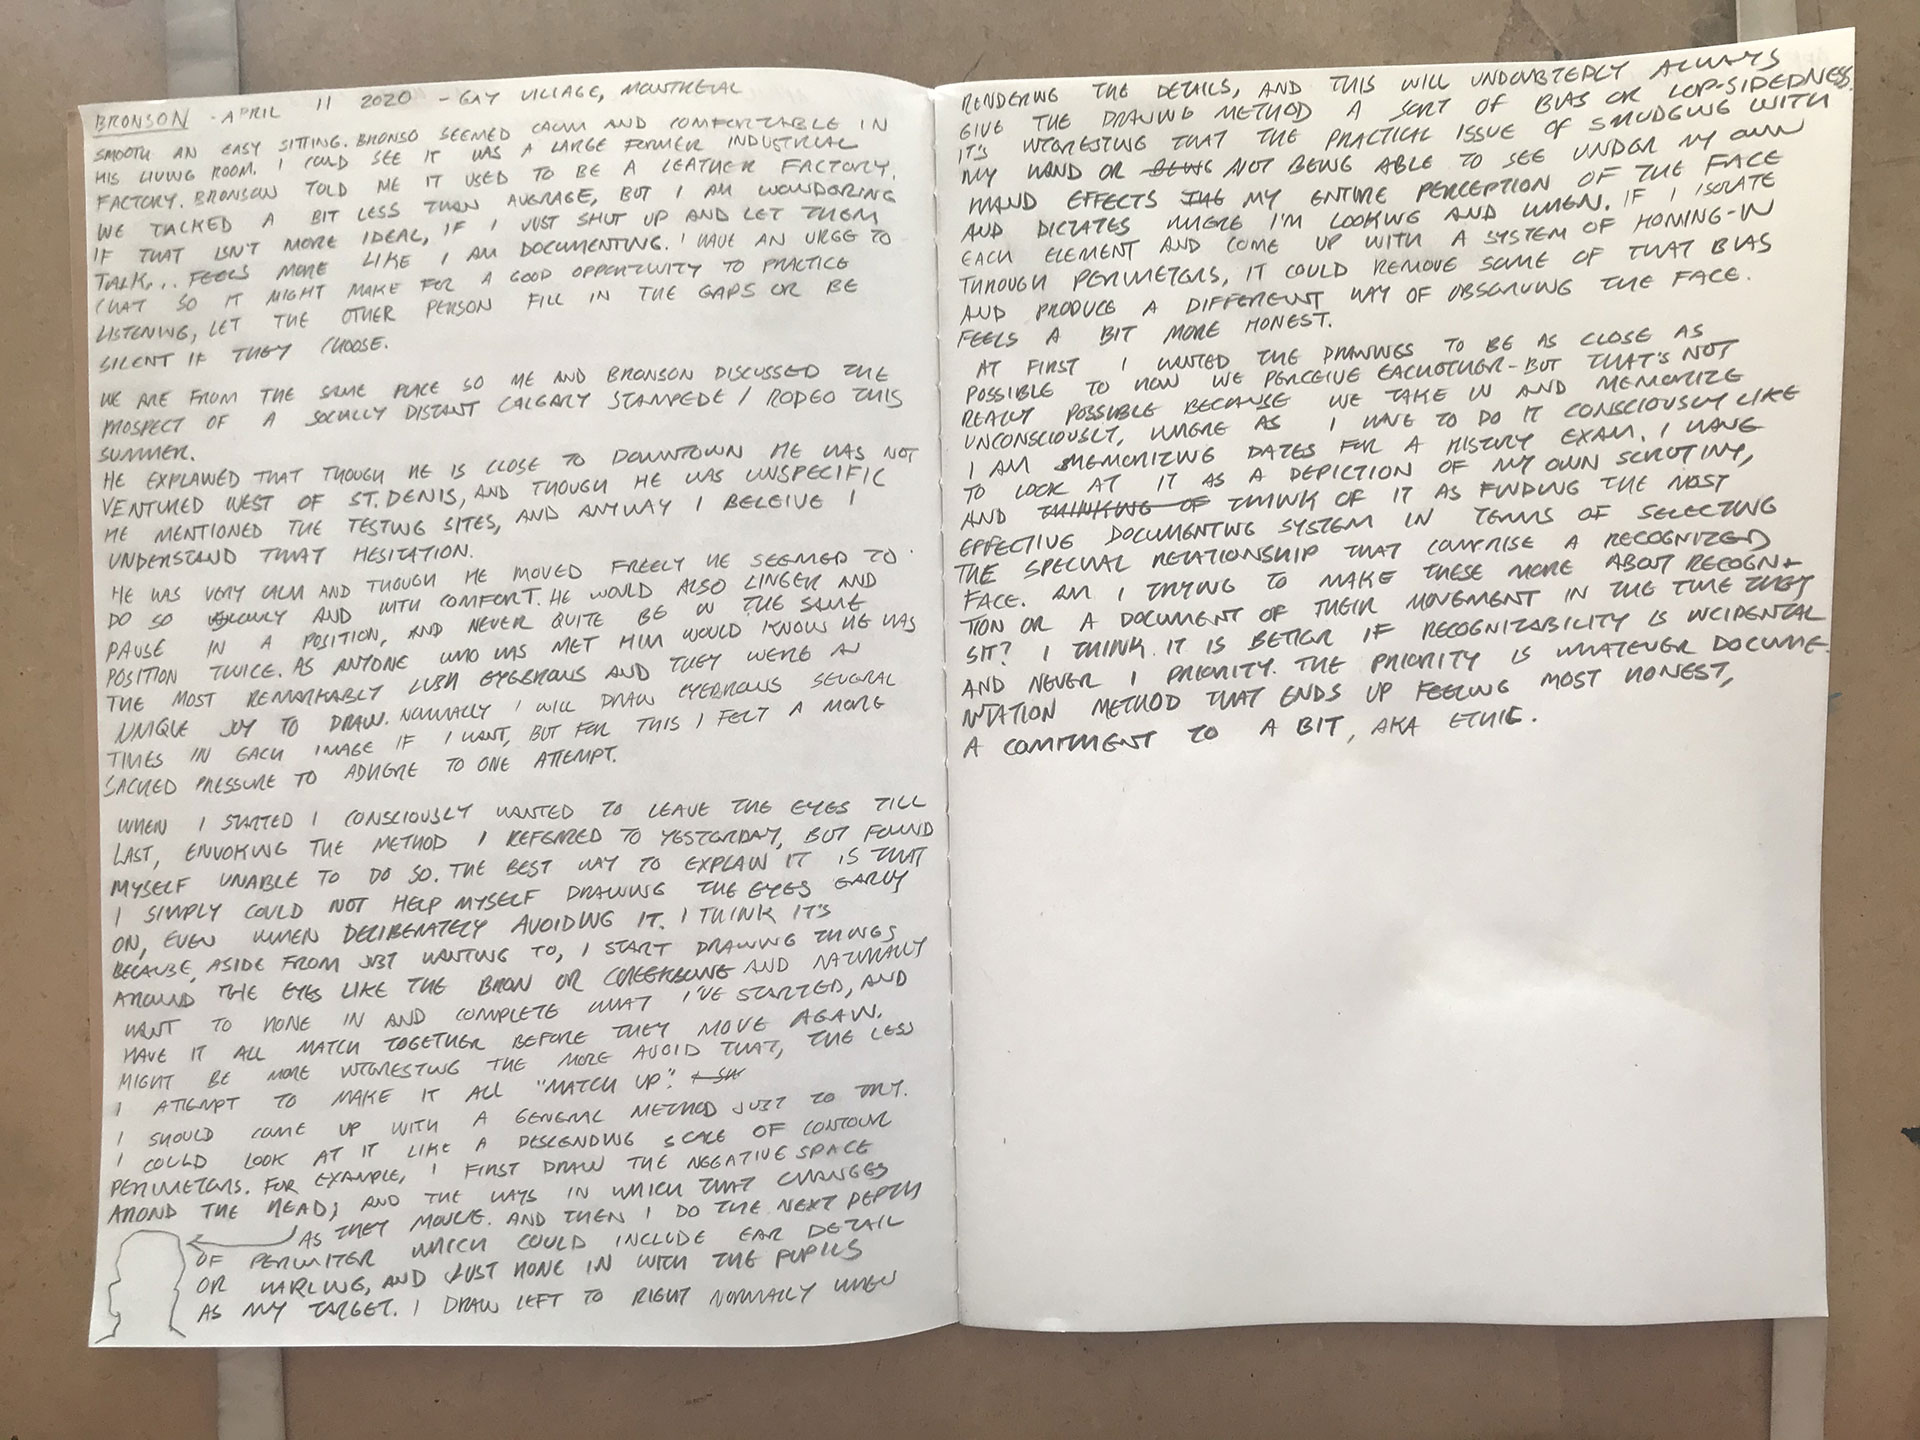 BRONSON - APRIL 11 2020 - GAY VILLAGE, MONTREAL
SMOOTH AN EASY SITTING. BRONSO SEEMED CALM AND COMFORTABLE IN
HIS LIVING ROOM. I COULD SEE IT WAS A LARGE FORMER INDUSTRIAL
FACTORY. BRONSON TOLD ME IT USED TO BE A LEATHER FACTORY.
WE TALKED A BIT LESS THAN AVERAGE, BUT I AM WONDERING
IF THAT ISN'T MORE IDEAL, IF I JUST SHUT UP AND LET THEM
TALK... FEELS MORE LIKE I AM DOCUMENTING. I HAVE AN URGE TO
CHAT SO IT MIGHT MAKE FOR A GOOD OPPORTUNITY TO PRACTICE
LISTENING, LET THE OTHER PERSON FILL IN THE GAPS OR BE
SILENT IF THEY CHOOSE.
WE ARE FROM THE SAME PLACE SO ME AND BRONSON DISCUSSED THE
PROSPECT OF A SOCIALLY DISTANT CALGARY STAMPEDE / RODEO THIS
SUMMER.
HE EXPLAINED THAT THOUGH HE IS CLOSE TO DOWNTOWN HE HAS NOT
VENTURED WEST OF ST. DENIS, AND THOUGH HE WAS UNSPECIFIC
HE MENTIONED THE TESTING SITES, AND ANYWAY I BELEIVE I
UNDERSTAND THAT HESITATION.
HE WAS VERY CALM AND THOUGH HE MOVED FREELY HE SEEMED TO
DO SO SLOWLY AND WITH COMFORT. HE WOULD ALSO LINGER AND
PAUSE IN A POSITION, AND NEVER QUITE BE IN THE SAME
POSITION TWICE. AS ANYONE WHO HAS MET HIM WOULD KNOW HE HAS
THE MOST REMARKABLY LUSH EYEBROWS AND THEY WERE AN
UNIQUE JOY TO DRAW. NORMALLY I WILL DRAW EYEBROWS SEVERAL
TIMES IN EACH IMAGE IF I WANT, BUT FOR THIS I FELT A MORE
SACRED PRESSURE TO ADHERE TO ONE ATTEMPT.
WHEN I STARTED I CONSCIOUSLY WANTED TO LEAVE THE EYES TILL
LAST, ENVOKING THE METHOD I REFERRED TO YESTERDAY, BUT FOUND
MYSELF UNABLE TO DO SO. THE BEST WAY TO EXPLAIN IT IS THAT
I SIMPLY COULD NOT HELP MYSELF DRAWING THE EYES EARLY
ON, EVEN WHEN DELIBERATELY AVOIDING IT. I THINK IT'S
BECAUSE, ASIDE FROM JUST WANTING TO, I START DRAWING THINGS
AROUND THE EYES LIKE THE BROW OR CHEEKBONE AND NATURALLY
WANT TO HONE IN AND COMPLETE WHAT I'VE STARTED, AND
HAVE IT ALL MATCH TOGETHER BEFORE THEY MOVE AGAIN.
MIGHT BE MORE INTERESTING THE MORE AVOID THAT, THE LESS
I ATTEMPT TO MAKE IT ALL "MATCH UP".
I SHOULD COME UP WITH A GENERAL METHOD JUST TO TRY.
I COULD LOOK AT IT LIKE A DESCENDING SCALE OF CONTOUR
PERIMETERS. FOR EXAMPLE, I FIRST DRAW THE NEGATIVE SPACE
AROND THE HEAD, AND THE WAYS IN WHICH THAT CHANGES
AS THEY MOVE. AND THEN I DO THE NEXT DEPTH
OF PERIMITER WHICH COULD INCLUDE EAR DETAIL
OR HAIRLINE, AND JUST HONE IN WITH THE PUPILS
AS MY TARGET. I DRAW LEFT TO RIGHT NORMALLY WHEN
RENDERING THE DETAILS, AND THIS WILL UNDOUBTEDLY ALWAYS
GIVE THE DRAWING METHOD A SORT OF BIAS OR LOP-SIDEDNESS.
IT'S INTERESTING THAT THE PRACTICAL ISSUE OF SMUDGING WITH
MY HAND OR BEING NOT BEING ABLE TO SEE UNDER MY OWN
HAND EFFECTS THE MY ENTIRE PERCEPTION OF THE FACE
AND DICTATES WHERE I'M LOOKING AND WHEN. IF I ISOLATE
EACH ELEMENT AND COME UP WITH A SYSTEM OF HOMING-IN
THROUGH PERIMETERS, IT COULD REMOVE SOME OF THAT BIAS
AND PRODUCE A DIFFERENT WAY OF OBSERVING THE FACE.
FEELS A BIT MORE HONEST.
AT FIRST I WANTED THE DRAWINGS TO BE AS CLOSE AS
POSSIBLE TO HOW WE PERCEIVE EACHOTHER - BUT THAT'S NOT
REALLY POSSIBLE BECAUSE WE TAKE IN AND MEMORIZE
UNCONSCIOUSLY, WHERE AS I HAVE TO DO IT CONSCIOUSLY LIKE
I AM MEMORIZING DATES FOR A HISTORY EXAM. I HAVE
TO LOOK AT IT AS A DEPICTION OF MY OWN SCRUTINY,
AND THINKING OF THINK OF IT AS FINDING THE MOST
EFFECTIVE DOCUMENTING SYSTEM IN TERMS OF SELECTING
THE SPECIAL RELATIONSHIP THAT COMPRISE A RECOGNIZED
FACE. AM I TRYING TO MAKE THESE MORE ABOUT RECOGNI-
TION OR A DOCUMENT OF THEIR MOVEMENT IN THE TIME THEY
SIT? I THINK IT IS BETTER IF RECOGNIZABILITY IS INCIDENTAL
AND NEVER I PRIORITY. THE PRIORITY IS WHATEVER DOCUME-
NTATION METHOD THAT ENDS UP FEELING MOST HONEST,
A COMITMENT TO A BIT, AKA ETHIC.